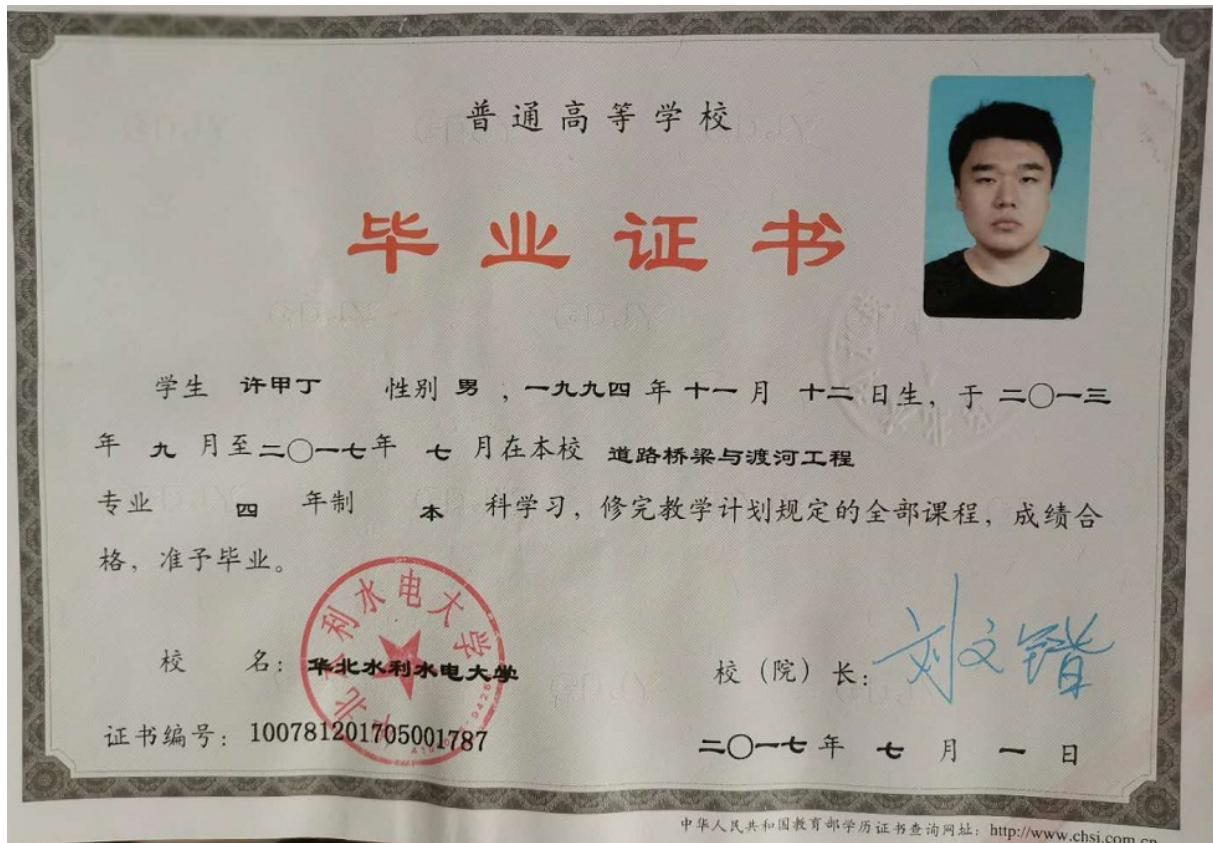 普通高等学校
毕业证书
学生 许甲丁 性别 男 ，一九九四 年 十一 月 十二 日生，于 二〇一三
年 九 月至二〇一七年 七 月在本校 道路桥梁与渡河工程
专业 四 年制 本 科学习，修完教学计划规定的全部课程，成绩合
格，准予毕业。
华北水利水电大学
校 名：华北水利水电大学
校（院）长：刘文锴
证书编号：100781201705001787
二〇一七年 七 月 一 日
中华人民共和国教育部学历证书查询网址：http://www.chsi.com.cn